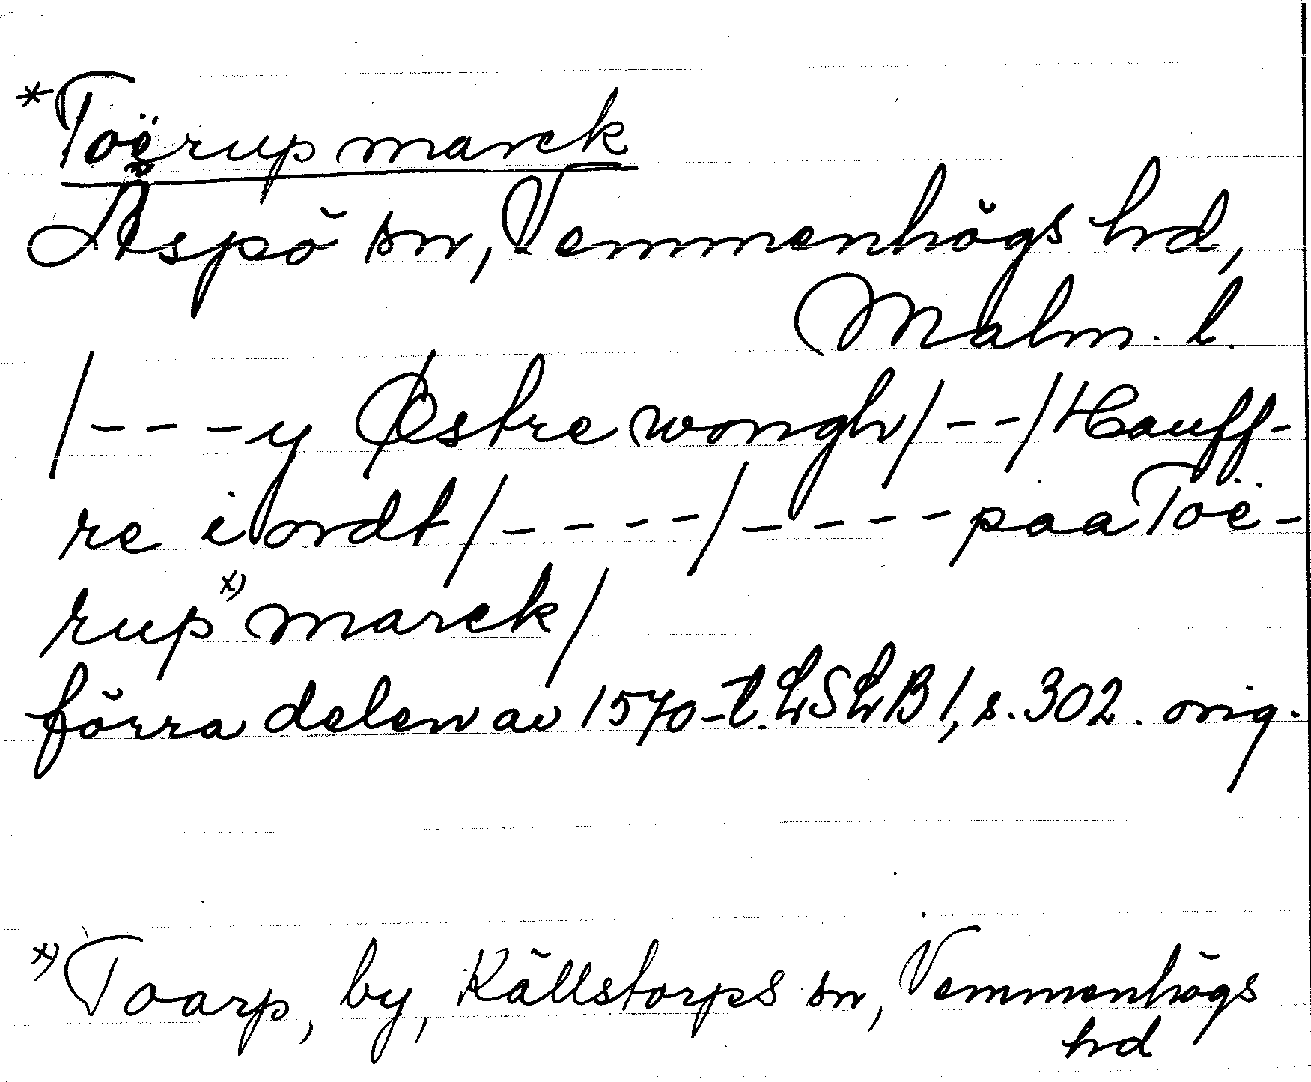 *Toërup marck
Äspö sn, Vemmenhögs hrd,
Malm. l.
/---y Østre wongh/--/Hauff-
re iordt/----/-----paa Toë-
rup x) marck/
förra delen av 1570-t. LSLB 1, s. 302. orig.
x) Toarp, by, Källstorps sn, Vemmenhögs
hrd